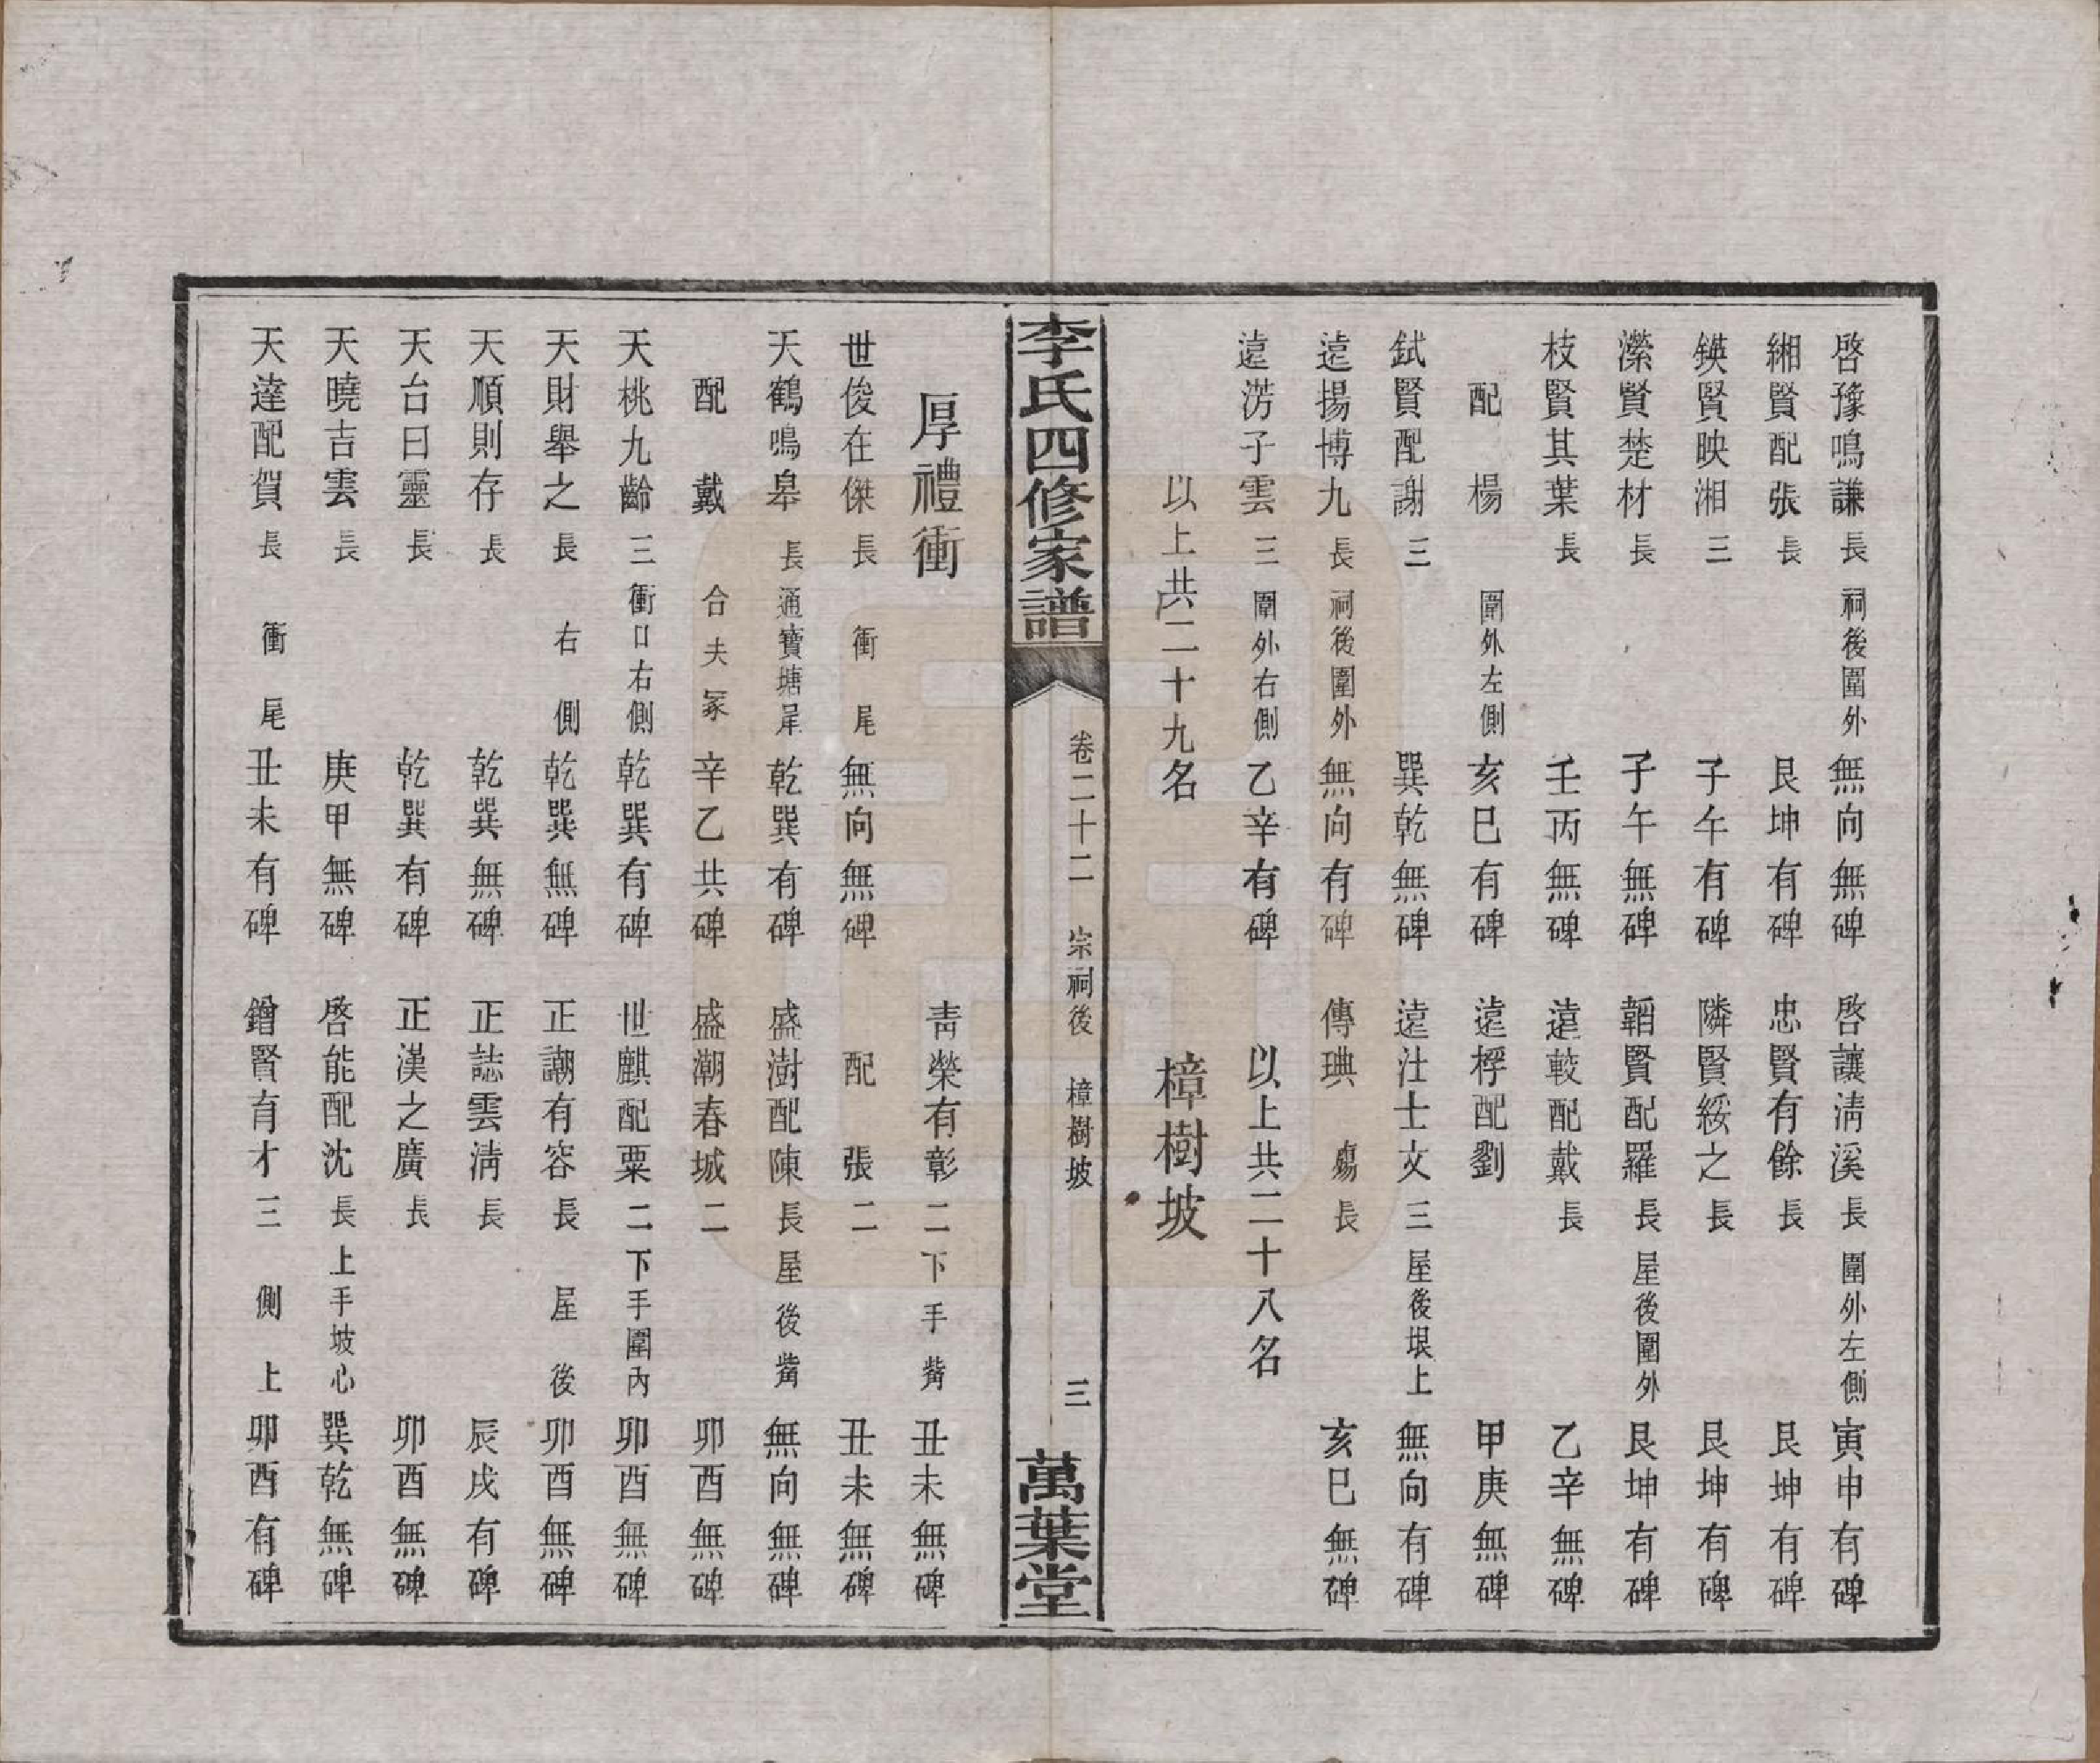 啓豫鳴謙 長 祠後圍外 無向無碑 啓讓淸溪 長 圍外左側 寅申有碑
緗賢配張 長 艮坤有碑 忠賢有餘 長 艮坤有碑
鍈賢映湘 三 子午有碑 隣賢綏之 長 艮坤有碑
濚賢楚材 長 子午無碑 韜賢配羅 長 屋後圍外 艮坤有碑
枝賢其葉 長 壬丙無碑 遠較配戴 長 乙辛無碑
配楊 圍外左側 亥巳有碑 遠桴配劉 甲庚無碑
鉽賢配謝 三 巽乾無碑 遠仕士文 三 屋後垠上 無向有碑
遠揚博九 長 祠後圍外 無向有碑 傳琠 殤 長 亥巳無碑
遠淓子雲 三 圍外右側 乙辛有碑 以上共二十八名
以上共二十九名 樟樹坡
李氏四修家譜 卷二十二 宗祠後 樟樹坡 三 萬葉堂
厚禮衝 靑榮有彰 二 下手 丑未無碑
世俊在傑 長 衝尾 無向無碑 配張 二 丑未無碑
天鶴鳴皋 長 通寶塘岸 乾巽有碑 盛澍配陳 長 屋後 無向無碑
配戴 合夫冢 辛乙共碑 盛潮春城 二 卯酉無碑
天桃九齡 三 衝口右側 乾巽有碑 世麒配粟 二 下手圍內 卯酉無碑
天財舉之 長 右側 乾巽無碑 正謿有容 長 屋後 卯酉無碑
天順則存 長 乾巽無碑 正誌雲淸 長 辰戌有碑
天台曰靈 長 乾巽有碑 正漢之廣 長 卯酉無碑
天曉吉雲 長 庚甲無碑 啓能配沈 長 上手坡心 巽乾無碑
天達配賀 長 衝尾 丑未有碑 鏳賢育才 三 側上 卯酉有碑